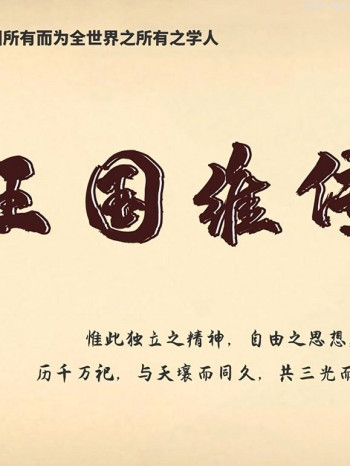 所有而为全世界之所有之学人
王国维传
惟此独立之精神，自由之思想，
历千万祀，与天壤而同久，共三光而